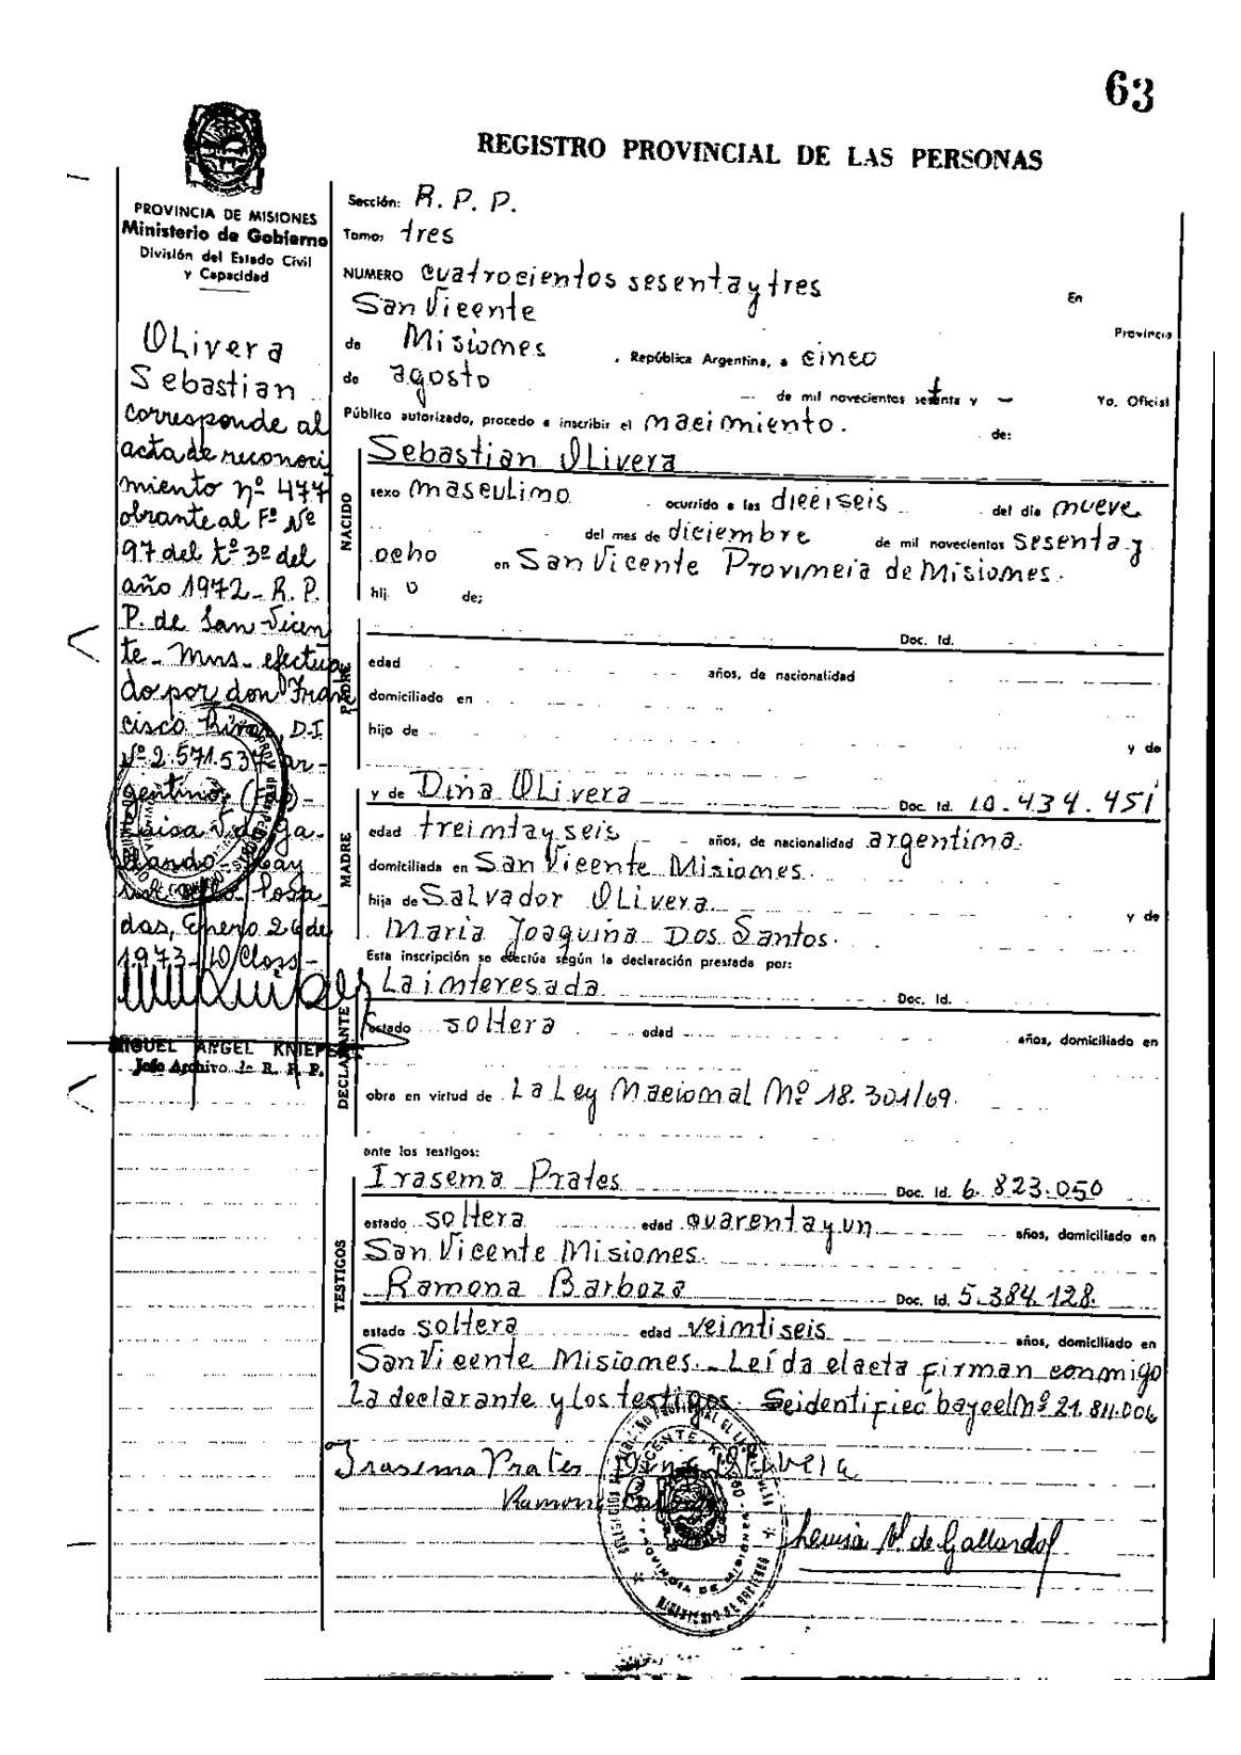 63
REGISTRO PROVINCIAL DE LAS PERSONAS
PROVINCIA DE MISIONES
Ministerio de Gobierno
División del Estado Civil
y Capacidad
OLivera
Sebastian
corresponde al
acta de reconoci
miento nº 477
obrante al Fº Nº
97 del tº 3º del
año 1972 - R. P.
P. de San Vicen
te - Mns - efectua
do por don Fran
cisco Rivas, D.I.
Nº 2.571.537 ar-
gentino, (Fdo-
Luisa V. de Ga-
llardo- Hay
un sello- Posa
das, Enero 26 de
1973-
MIGUEL ANGEL KNIEPS
Jefe Archivo de R. P. P.
Sección: R. P. P.
Tomo: tres
NUMERO cuatrocientos sesenta y tres En
San Vicente Provincia
de Misiones , República Argentina, a cinco
de agosto de mil novecientos setenta y — Yo, Oficial
Público autorizado, procedo a inscribir el nacimiento. de:
NACIDO
Sebastian OLivera
sexo masculino ocurrido a las dieciseis del día nueve
del mes de diciembre de mil novecientos sesenta y
ocho en San Vicente Provincia de Misiones.
hij o de:
PADRE
Doc. Id.
edad años, de nacionalidad
domiciliado en
hijo de y de
MADRE
y de Dina OLivera Doc. Id. 10.434.451
edad treinta y seis años, de nacionalidad argentina.
domiciliada en San Vicente Misiones.
hija de Salvador OLivera y de
Maria Joaquina Dos Santos.
Esta inscripción se efectúa según la declaración prestada por:
DECLARANTE
La interesada Doc. Id.
estado soltera edad años, domiciliado en
obra en virtud de La Ley Nacional Nº 18.301/69.
ante los testigos:
TESTIGOS
Irasema Prates Doc. Id. 6.823.050
estado soltera edad cuarenta y un años, domiciliado en
San Vicente Misiones.
Ramona Barboza Doc. Id. 5.384.128.
estado soltera edad veintiseis años, domiciliado en
San Vicente Misiones. Leída el acta firman conmigo
La declarante y los testigos. Se identificó
Irasema Prates Dina Olivera
Ramona
V. de Gallardo